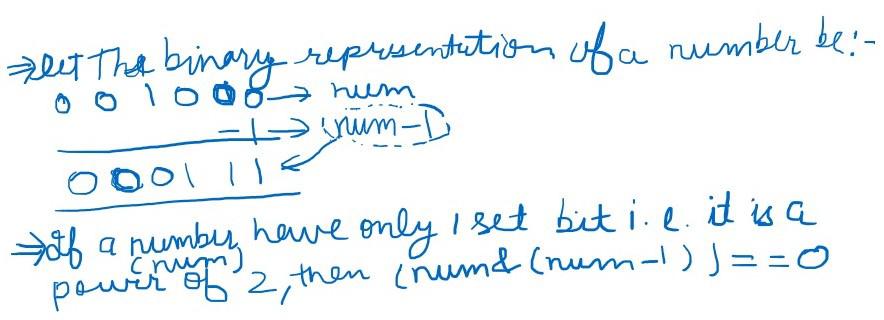 ⇒let The binary representation of a number be:-
0 0 1 0 0 0 → num
-1 → num-1
0 0 0 1 1 1
⇒If a number have only 1 set bit i.e. it is a
(num)
power of 2, then (num & (num-1)) == 0